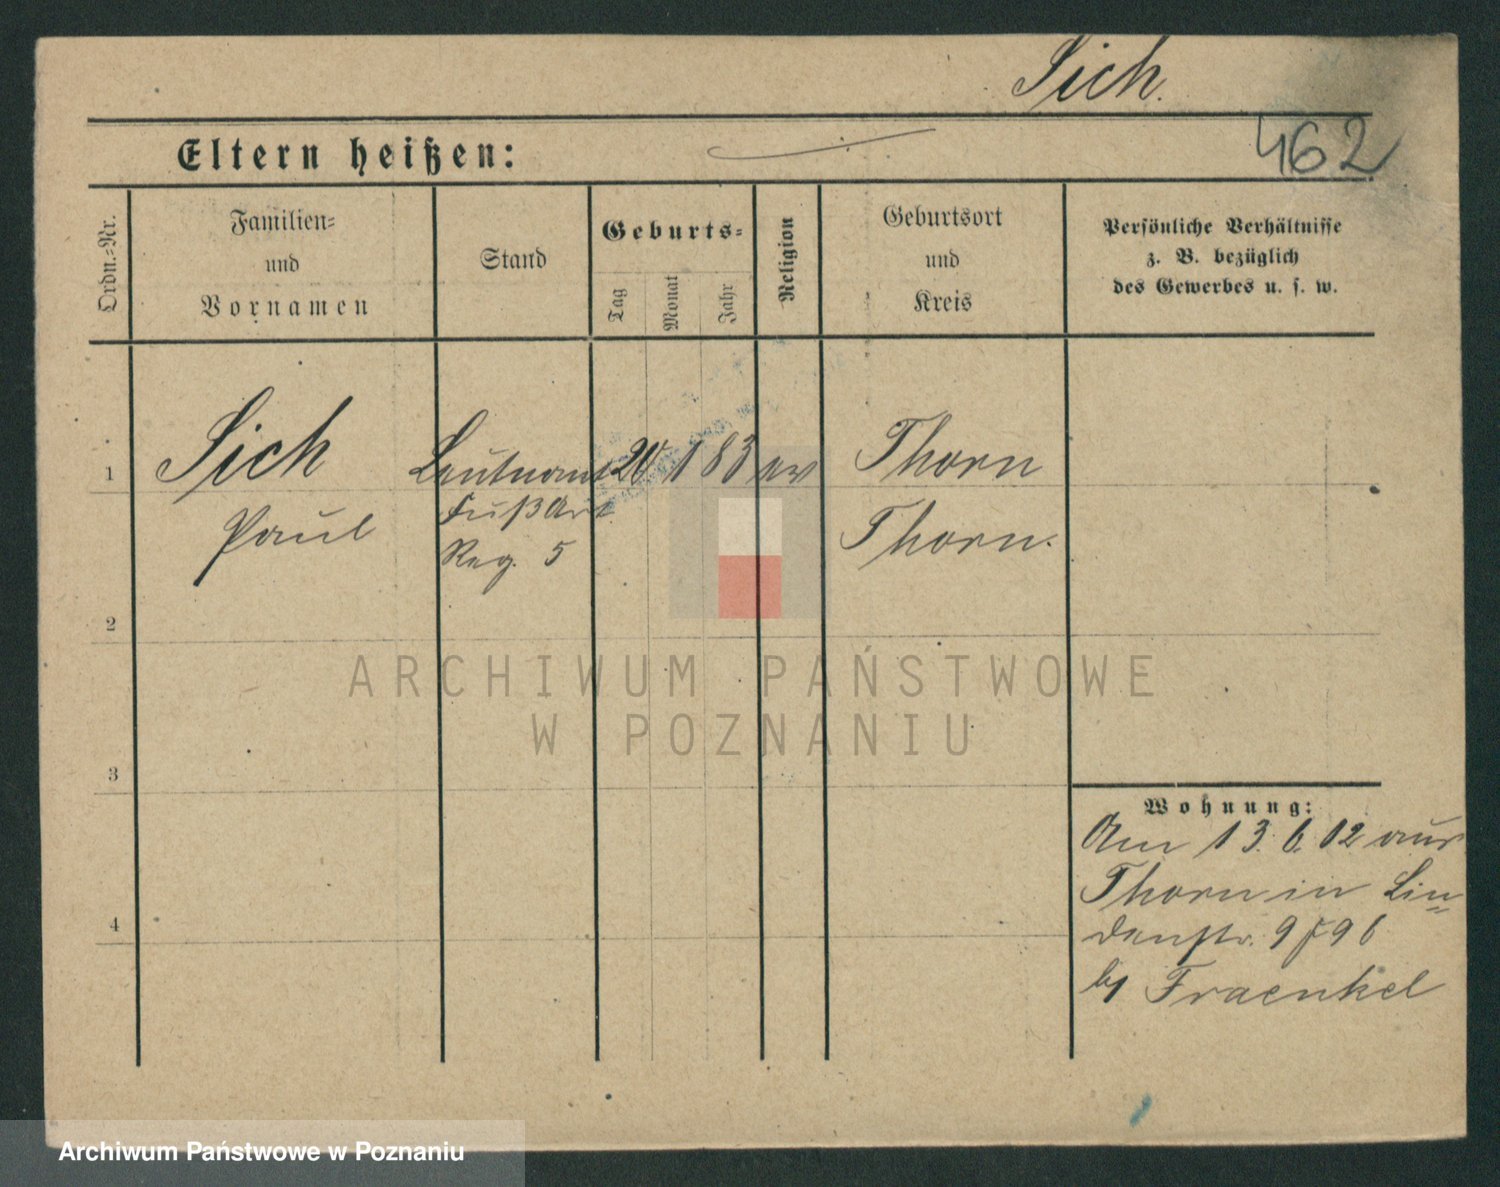 Sich.
462
Eltern heißen:
Ordn.=Nr.
Familien=
und
Vornamen
Stand
Geburts=
Tag
Monat
Jahr
Religion
Geburtsort
und
Kreis
Persönliche Verhältnisse
z. B. bezüglich
des Gewerbes u. s. w.
1
Sich
Paul
Leutnant
Fußart
Reg. 5
20 1 83 ev
Thorn
Thorn.
2
3
4
Wohnung:
Am 13. 6. 02 aus
Thorn in Lin=
denstr. 9
b/ Fraenkel
ARCHIWUM PAŃSTWOWE
W POZNANIU
Archiwum Państwowe w Poznaniu